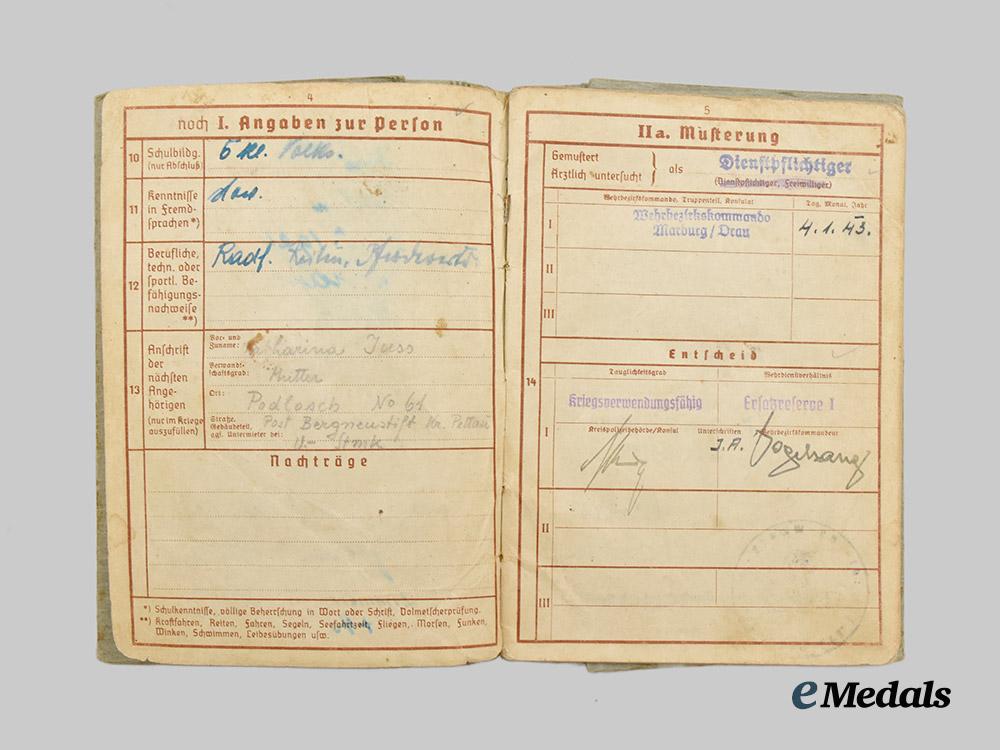 4
noch I. Angaben zur Person
10 Schulbildg. (nur Abschluß)
5 kl. Volks.
11 Kenntnisse in Fremdsprachen*)
12 Berufliche, techn. oder sportl. Befähigungsnachweise **)
Radf.
13 Anschrift der nächsten Angehörigen (nur im Kriege auszufüllen)
Vor- und Zuname: Katharina
Verwandtschaftsgrad: Mutter
Ort: Podlosch No 61
Straße, Gebäudeteil, ggf. Untermieter bei: Post Bergneustift Kr. Pettau
Nachträge
*) Schulkenntnisse, völlige Beherrschung in Wort oder Schrift, Dolmetscherprüfung.
**) Kraftfahren, Reiten, Fahren, Segeln, Seefahrtzeit, Fliegen, Morsen, Funken,
Winken, Schwimmen, Leibesübungen usw.
5
IIa. Musterung
Gemustert
Ärztlich untersucht } als
Dienstpflichtiger
(Dienstpflichtiger, Freiwilliger)
Wehrbezirkskommando, Truppenteil, Konsulat
Tag, Monat, Jahr
I
Wehrbezirkskommando
Marburg/Drau
4.1.43.
II
III
Entscheid
14
Tauglichkeitsgrad
Wehrdienstverhältnis
Kriegsverwendungsfähig
Ersatzreserve I
I
Kreispolizeibehörde/Konsul
Unterschriften
Wehrbezirkskommandeur
J.A. Vogelsang
II
III
eMedals